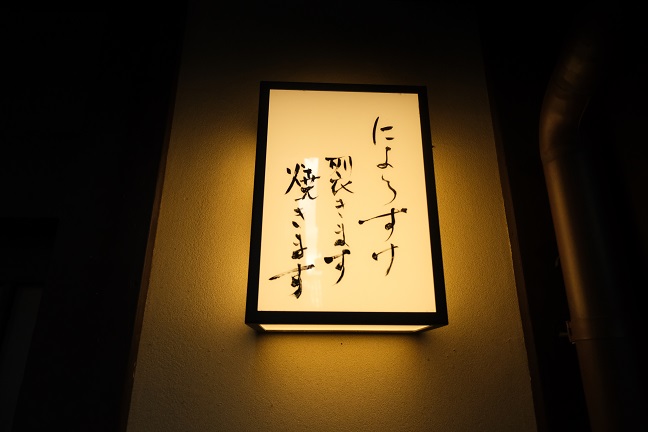 にょろすけ
裂きます
焼きます